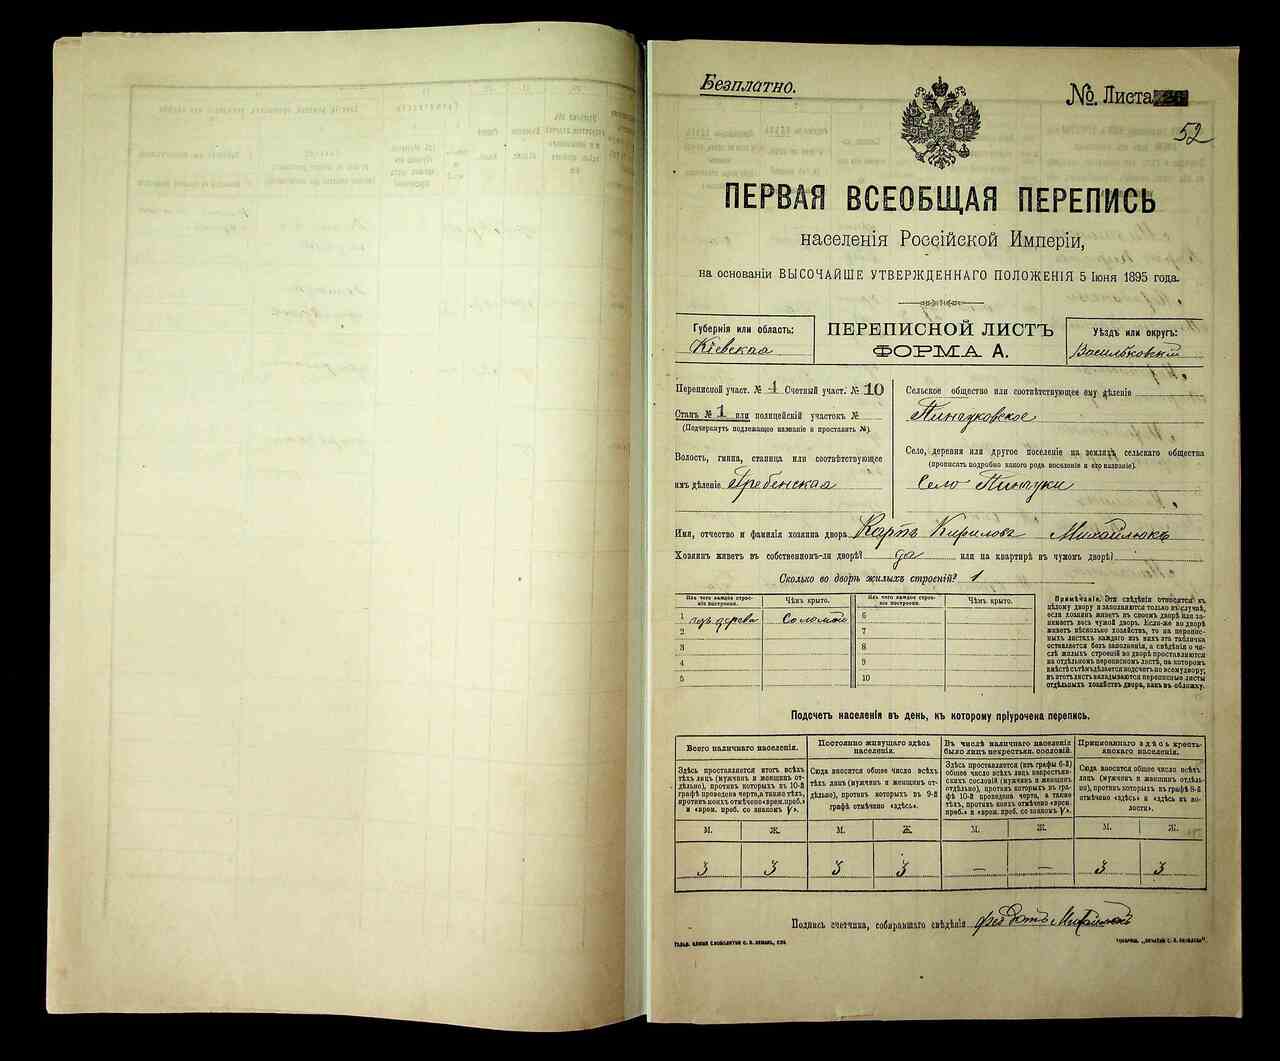 Безплатно.
№. Листа 26
52
ПЕРВАЯ ВСЕОБЩАЯ ПЕРЕПИСЬ
населенія Россійской Имперіи,
на основаніи ВЫСОЧАЙШЕ УТВЕРЖДЕННАГО ПОЛОЖЕНІЯ 5 Іюня 1895 года.
Губернія или область:
Кіевская
ПЕРЕПИСНОЙ ЛИСТЪ
ФОРМА А.
Уѣздъ или округъ:
Васильковскій
Переписной участ. № 4 Счетный участ. № 10
Станъ № 1 или полицейскій участокъ №
(Подчеркнуть подлежащее названіе и проставить №).
Волость, гмина, станица или соотвѣтствующее
имъ дѣленіе Гребенская
Сельское общество или соотвѣтствующее ему дѣленіе
Пинчуковское
Село, деревня или другое поселеніе на земляхъ сельскаго общества
(прописать подробно какого рода поселеніе и его названіе).
Село Пинчуки
Имя, отчество и фамилія хозяина двора Карпъ Кириловъ Михайлюкъ
Хозяинъ живетъ въ собственномъ-ли дворѣ? да или на квартирѣ въ чужомъ дворѣ?
Сколько во дворѣ жилыхъ строеній? 1
Изъ чего каждое строеніе построено.
Чѣмъ крыто.
Изъ чего каждое строеніе построено.
Чѣмъ крыто.
1 изъ дерева Соломой 6
2 7
3 8
4 9
5 10
Примѣчаніе. Эти свѣдѣнія относятся къ
цѣлому двору и заполняются только въ случаѣ,
если хозяинъ живетъ въ своемъ дворѣ или занимаетъ
весь чужой дворъ. Если-же во дворѣ
живетъ нѣсколько хозяйствъ, то на переписныхъ
листахъ каждаго изъ нихъ эта табличка
оставляется безъ заполненія, а свѣдѣнія о числѣ
жилыхъ строеній во дворѣ проставляются
на отдѣльномъ переписномъ листѣ, на которомъ
вмѣстѣ съ тѣмъ дѣлается подсчетъ по всему двору;
въ этотъ листъ вкладываются переписные листы
отдѣльныхъ хозяйствъ двора, какъ въ обложку.
Подсчетъ населенія въ день, къ которому пріурочена перепись.
Всего наличнаго населенія.
Здѣсь проставляется итогъ всѣхъ
тѣхъ лицъ (мужчинъ и женщинъ отдѣльно),
противъ которыхъ въ 10-й
графѣ проведена черта, а также тѣхъ,
противъ коихъ отмѣчено «врем. преб.»
и «врем. преб. со знакомъ V».
Постоянно живущаго здѣсь
населенія.
Сюда вносится общее число всѣхъ
тѣхъ лицъ (мужчинъ и женщинъ отдѣльно),
противъ которыхъ въ 9-й
графѣ отмѣчено «здѣсь».
Въ числѣ наличнаго населенія
было лицъ некрестьян. сословій.
Здѣсь проставляется (изъ графы 6-й)
общее число всѣхъ лицъ некрестьянскихъ
сословій (мужчинъ и женщинъ
отдѣльно), противъ которыхъ въ графѣ
10-й проведена черта, а также
тѣхъ, противъ коихъ отмѣчено «врем.
преб.» и «врем. преб. со знакомъ V».
Приписаннаго здѣсь крестьянскаго
населенія.
Сюда вносится общее число всѣхъ
лицъ (мужчинъ и женщинъ отдѣльно),
противъ которыхъ въ графѣ 8-й
отмѣчено «здѣсь» и «здѣсь въ волости».
М. Ж. М. Ж. М. Ж. М. Ж.
3 3 3 3 — — 3 3
Подпись счетчика, собиравшаго свѣдѣнія Ѳедотъ Михайлюкъ